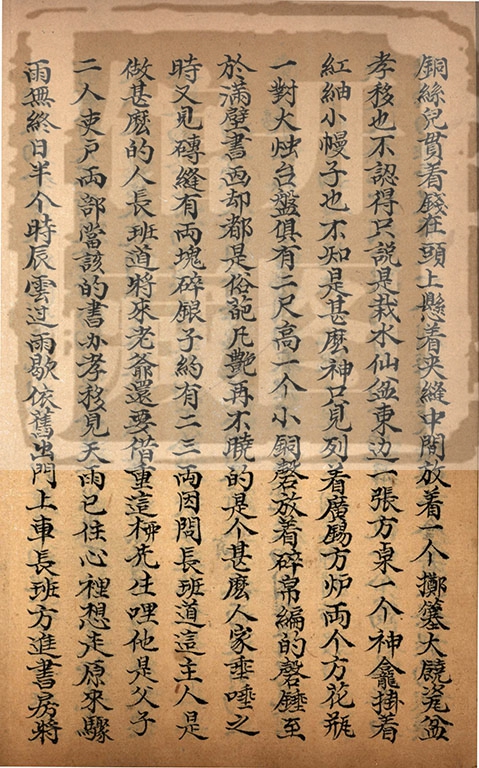 銅絲兒貫着籖在頭上懸着夾縫中閣放着一个擲簺大㲹瓷盆
孝移也不認得只說是栽水仙盆東边一張方桌一个神龕掛着
紅紬小幔子也不知是甚麽神只見列着廣錫方炉両个方花瓶
一對大烛台盤俱有二尺高一个小銅磬放着碎帛編的磬錘至
於滿壁書画却都是俗葩凡艷再不曉的是个甚麽人家埀唾之
時又見磚縫有両塊碎銀子約有二三両因問長班道這主人是
做甚麽的人長班道將來老爺還要借重這柳先生哩他是父子
二人吏戸両部當該的書办孝移見天雨已住心裡想走原來驟
雨無終日半个時辰雲过雨歇依舊出門上車長班方進書房將